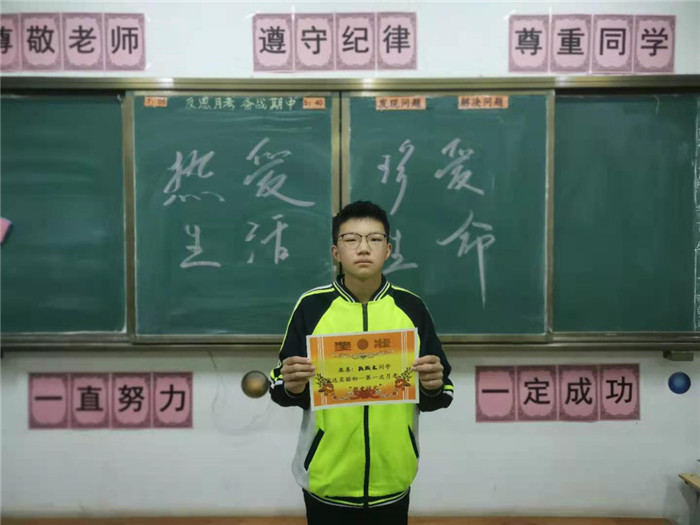 尊敬老师
遵守纪律
尊重同学
7:05
反思月考 备战期中
5:40
发现问题
解决问题
热爱
生活
珍爱
生命
奖状
一直努力
一定成功